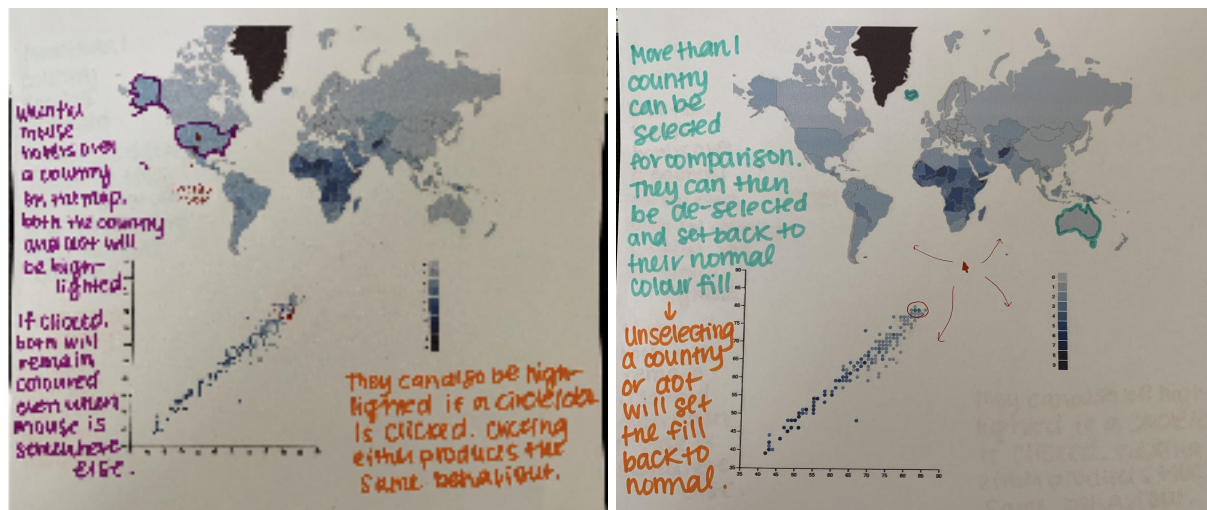 When the
mouse
hovers over
a country
on the map,
both the country
and dot will
be high-
lighted.
If clicked,
both will
remain
coloured
even when
mouse is
somewhere
else.
They can also be high-
lighted if a circle/dot
is clicked. Clicking
either produces the
same behaviour.
More than 1
country
can be
selected
for comparison.
They can then
be de-selected
and set back to
their normal
colour fill
Unselecting
a country
or dot
will set
the fill
back to
normal.
90
85
80
75
70
65
60
55
50
45
40
35
35 40 45 50 55 60 65 70 75 80 85 90
0
1
2
3
4
5
6
7
8
9